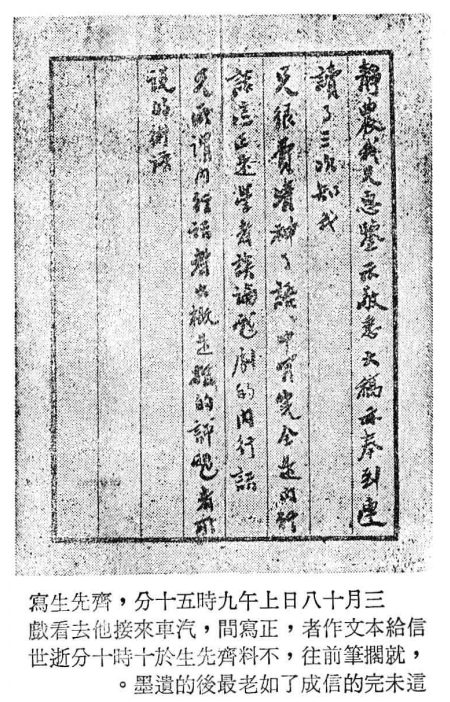 靜農我兄惠鑒示敬悉大稿亦奉到連
讀了三次知我
兄很費精神了語中有完全是內行
話這正是學者談論戲劇的內行話
兄所謂內行話者大概是的評戲者所
說的術語
三月十八日上午九時五十分，齊先生寫
信給本文作者，正寫間，汽車來接他去看戲
，就擱筆前往，不料齊先生於十時十分逝世
這未完的信成了如老最後的遺墨。